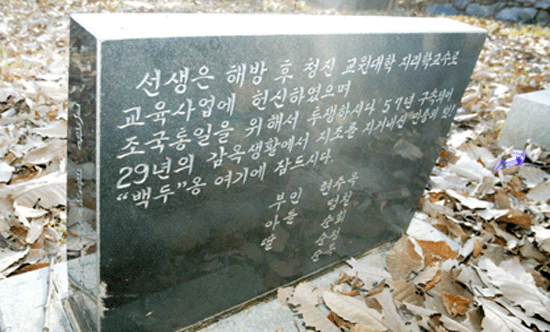 선생은 해방 후 청진 교원대학 지리학교수로
교육사업에 헌신하였으며
조국통일을 위해서 투쟁하시다 57년 구속되어
29년의 감옥생활에서 지조를 지켜내신 민중의 벗!
"백두"옹 여기에 잠드시다.
부인 현수옥
아들 영철
딸 순희
순
순